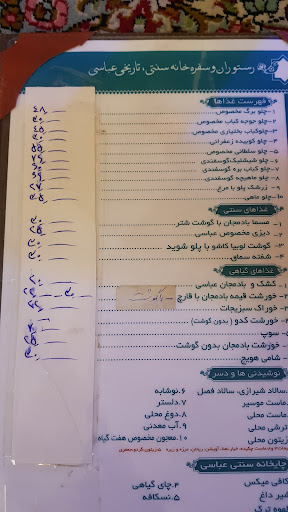 رستوران و سفره خانه سنتی، تاریخی عباسی
فهرست غذاها
۱-چلو برگ مخصوص
۲-چلو جوجه کباب مخصوص
۳-چلوکباب بختیاری مخصوص
۴-چلو کوبیده زعفرانی
۵-چلو سلطانی مخصوص
۶-چلو شیشلیک گوسفندی
۷-چلو کباب بره گوسفندی
۸-چلو ماهیچه گوسفندی
۹- زرشک پلو با مرغ
۱۰-چلو ماهی
غذاهای سنتی
۱- مسما بادمجان با گوشت شتر
۲- دیزی مخصوص عباسی
۳- گوشت لوبیا کاشو با پلو شوید
۴- شفته سماق
غذاهای گیاهی
۱- کشک و بادمجان عباسی
۲- خورشت قیمه بادمجان با قارچ
۳- خوراک سبزیجات
۴- خورشت کدو (بدون گوشت)
با گوشت
۵- سوپ
۶- خورشت بادمجان بدون گوشت
شامی هویج
نوشیدنی ها و دسر
سالاد شیرازی، سالاد فصل
۶.نوشابه
ماست موسیر
۷.دلستر
ماست محلی
۸.دوغ محلی
ترشی محلی
۹.آب معدنی
زیتون محلی
۱۰.معجون مخصوص هفت گیاه
چایخانه سنتی عباسی
کافی میکس
۴.چای گیاهی
شیر داغ
۵.نسکافه
قهوه ترک